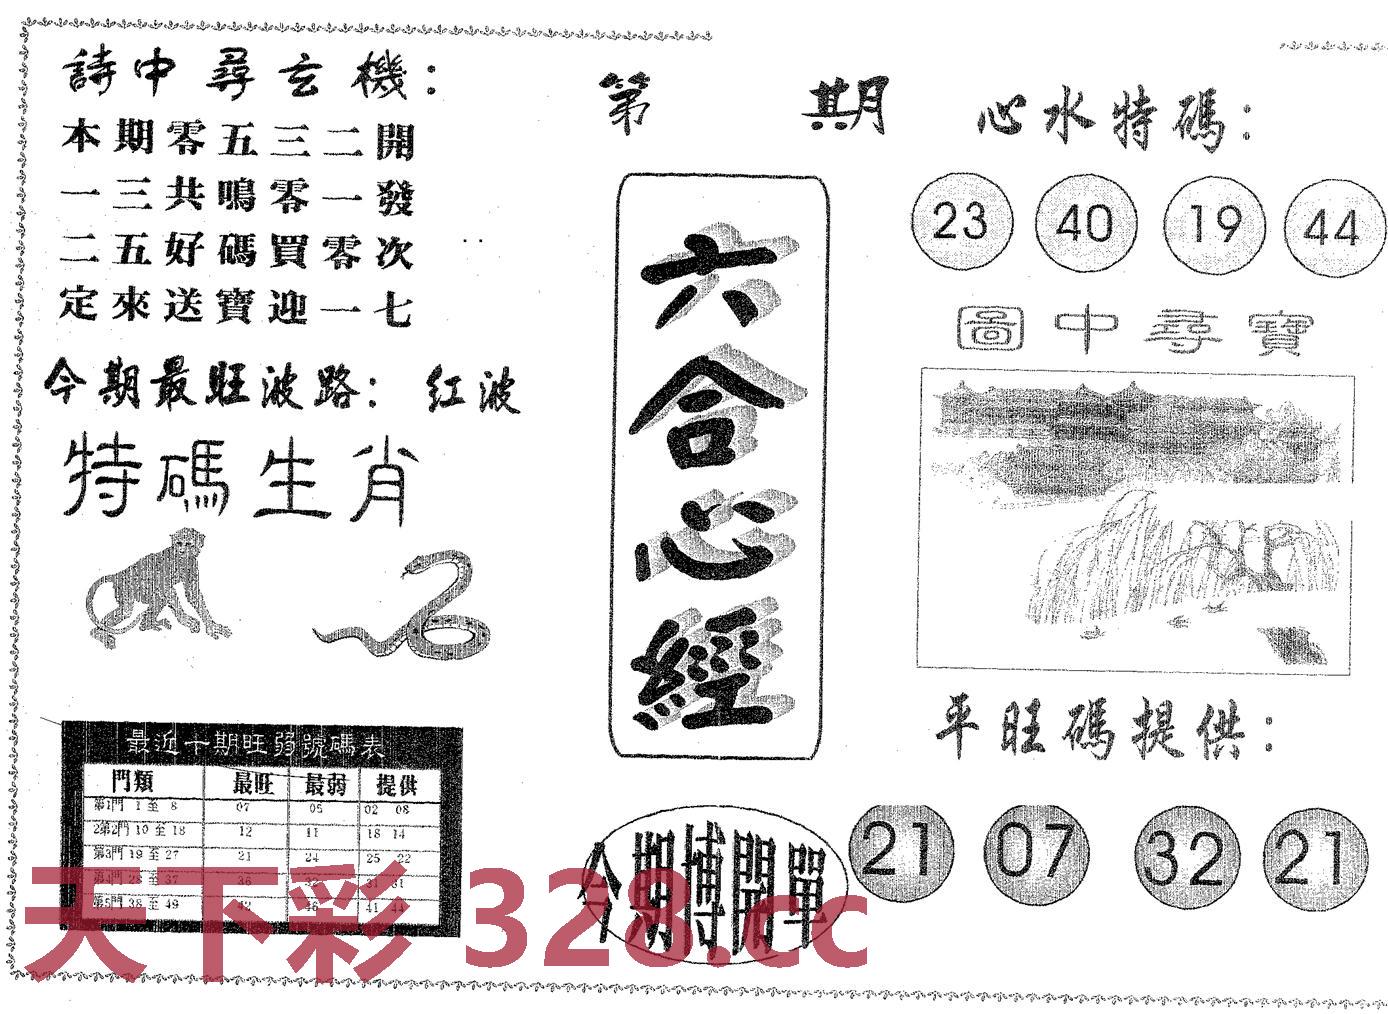 詩中尋玄機：
本期零五三二開
一三共鳴零一發
二五好碼買零次
定來送寶迎一七
今期最旺波路： 红波
特碼生肖
最近十期旺弱號碼表
門類 最旺 最弱 提供
第1門 1 至 8 07 05 02 08
2第2門 10 至 18 12 11 18 14
第3門 19 至 27 21 24 25 22
第4門 28 至 37 36 32 31 31
第5門 38 至 49 42 46 41 44
第 期
六合心經
今期博開單
心水特碼：
23 40 19 44
圖中尋寶
平旺碼提供：
21 07 32 21
天下彩 328.cc